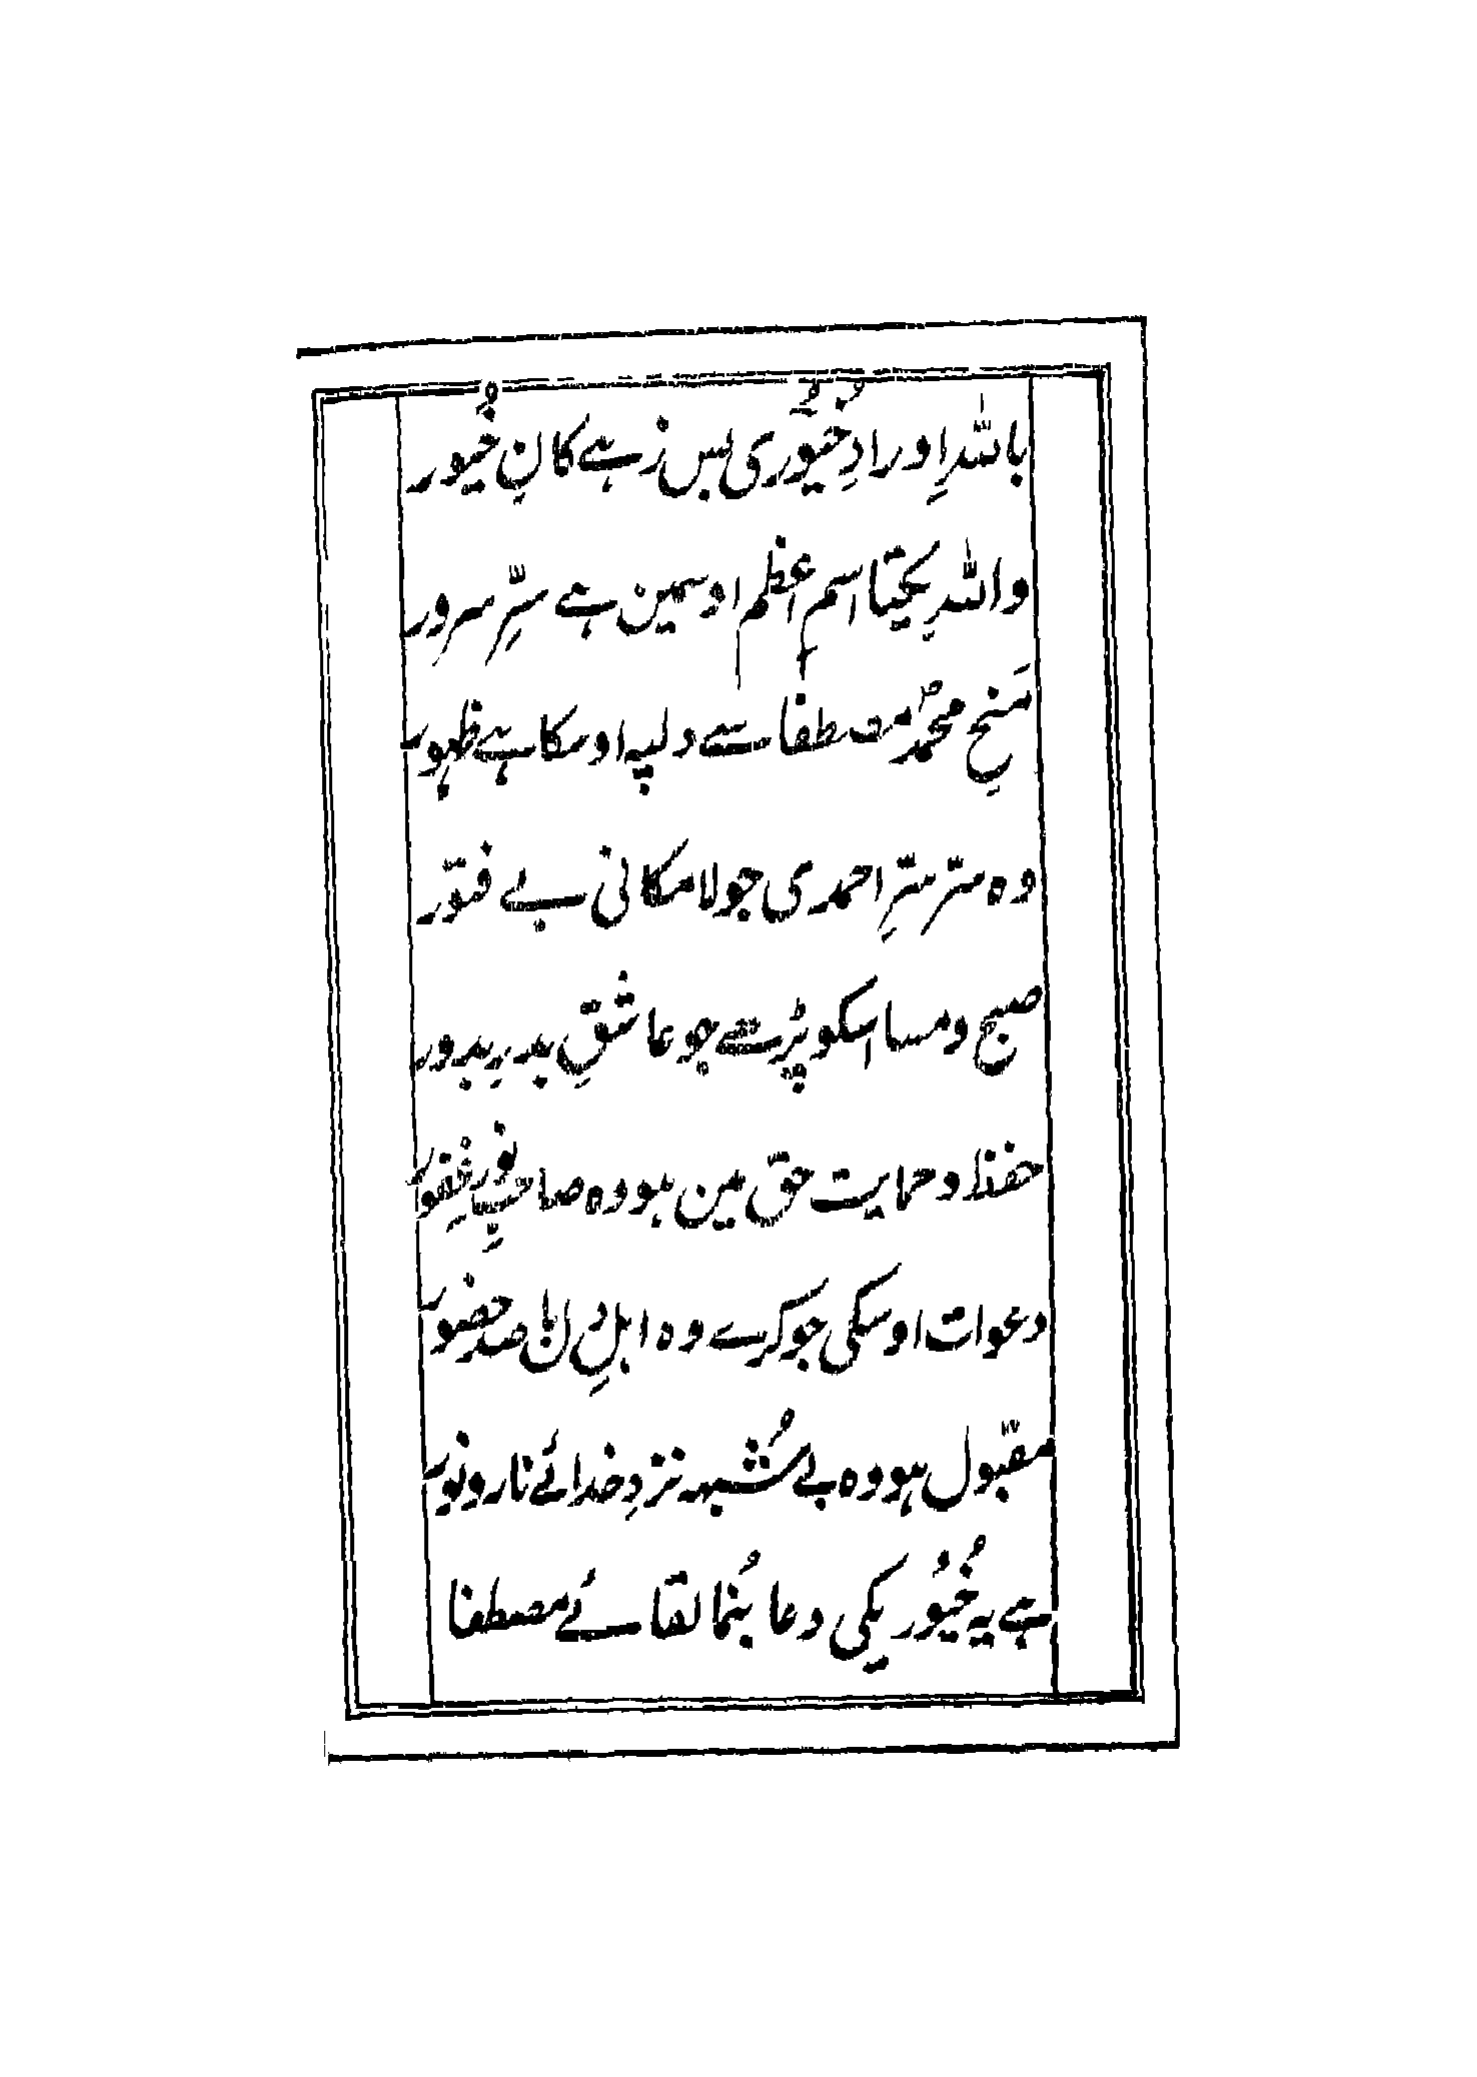 باللہِ اورادِ خُیُوری بس زہے کانِ خُیور
واللہِ یحیتا اسمِ اعظم اوسمین ہے سِرِّ سرور
مَنحِ محمدؐ مصطفا سے دلپہ اوسکا ہے ظہور
وہ سرّ سرِّ احمدی جو لامکانی بے فتور
صبح و مسا اسکو پڑھے جو عاشقِ بدرِ بدور
حفظ و حمایت حق مین ہو وہ صاحبِ نورِ غفور
دعوات اوسکی جو کرے وہ اہلِ دل با صد حضور
مقبول ہو وہ بے شُبہہ نزدِ خدائے نار و نور
ہے یہ خُیُور یکی دعا بُنما لقائے مصطفا